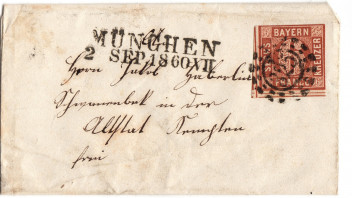 MÜNCHEN
2 SEP. 1860 XII
BAYERN
KREUZER
Herrn Jakob Haberlin
Schwanenbek in der
Altstat Kempten
frei